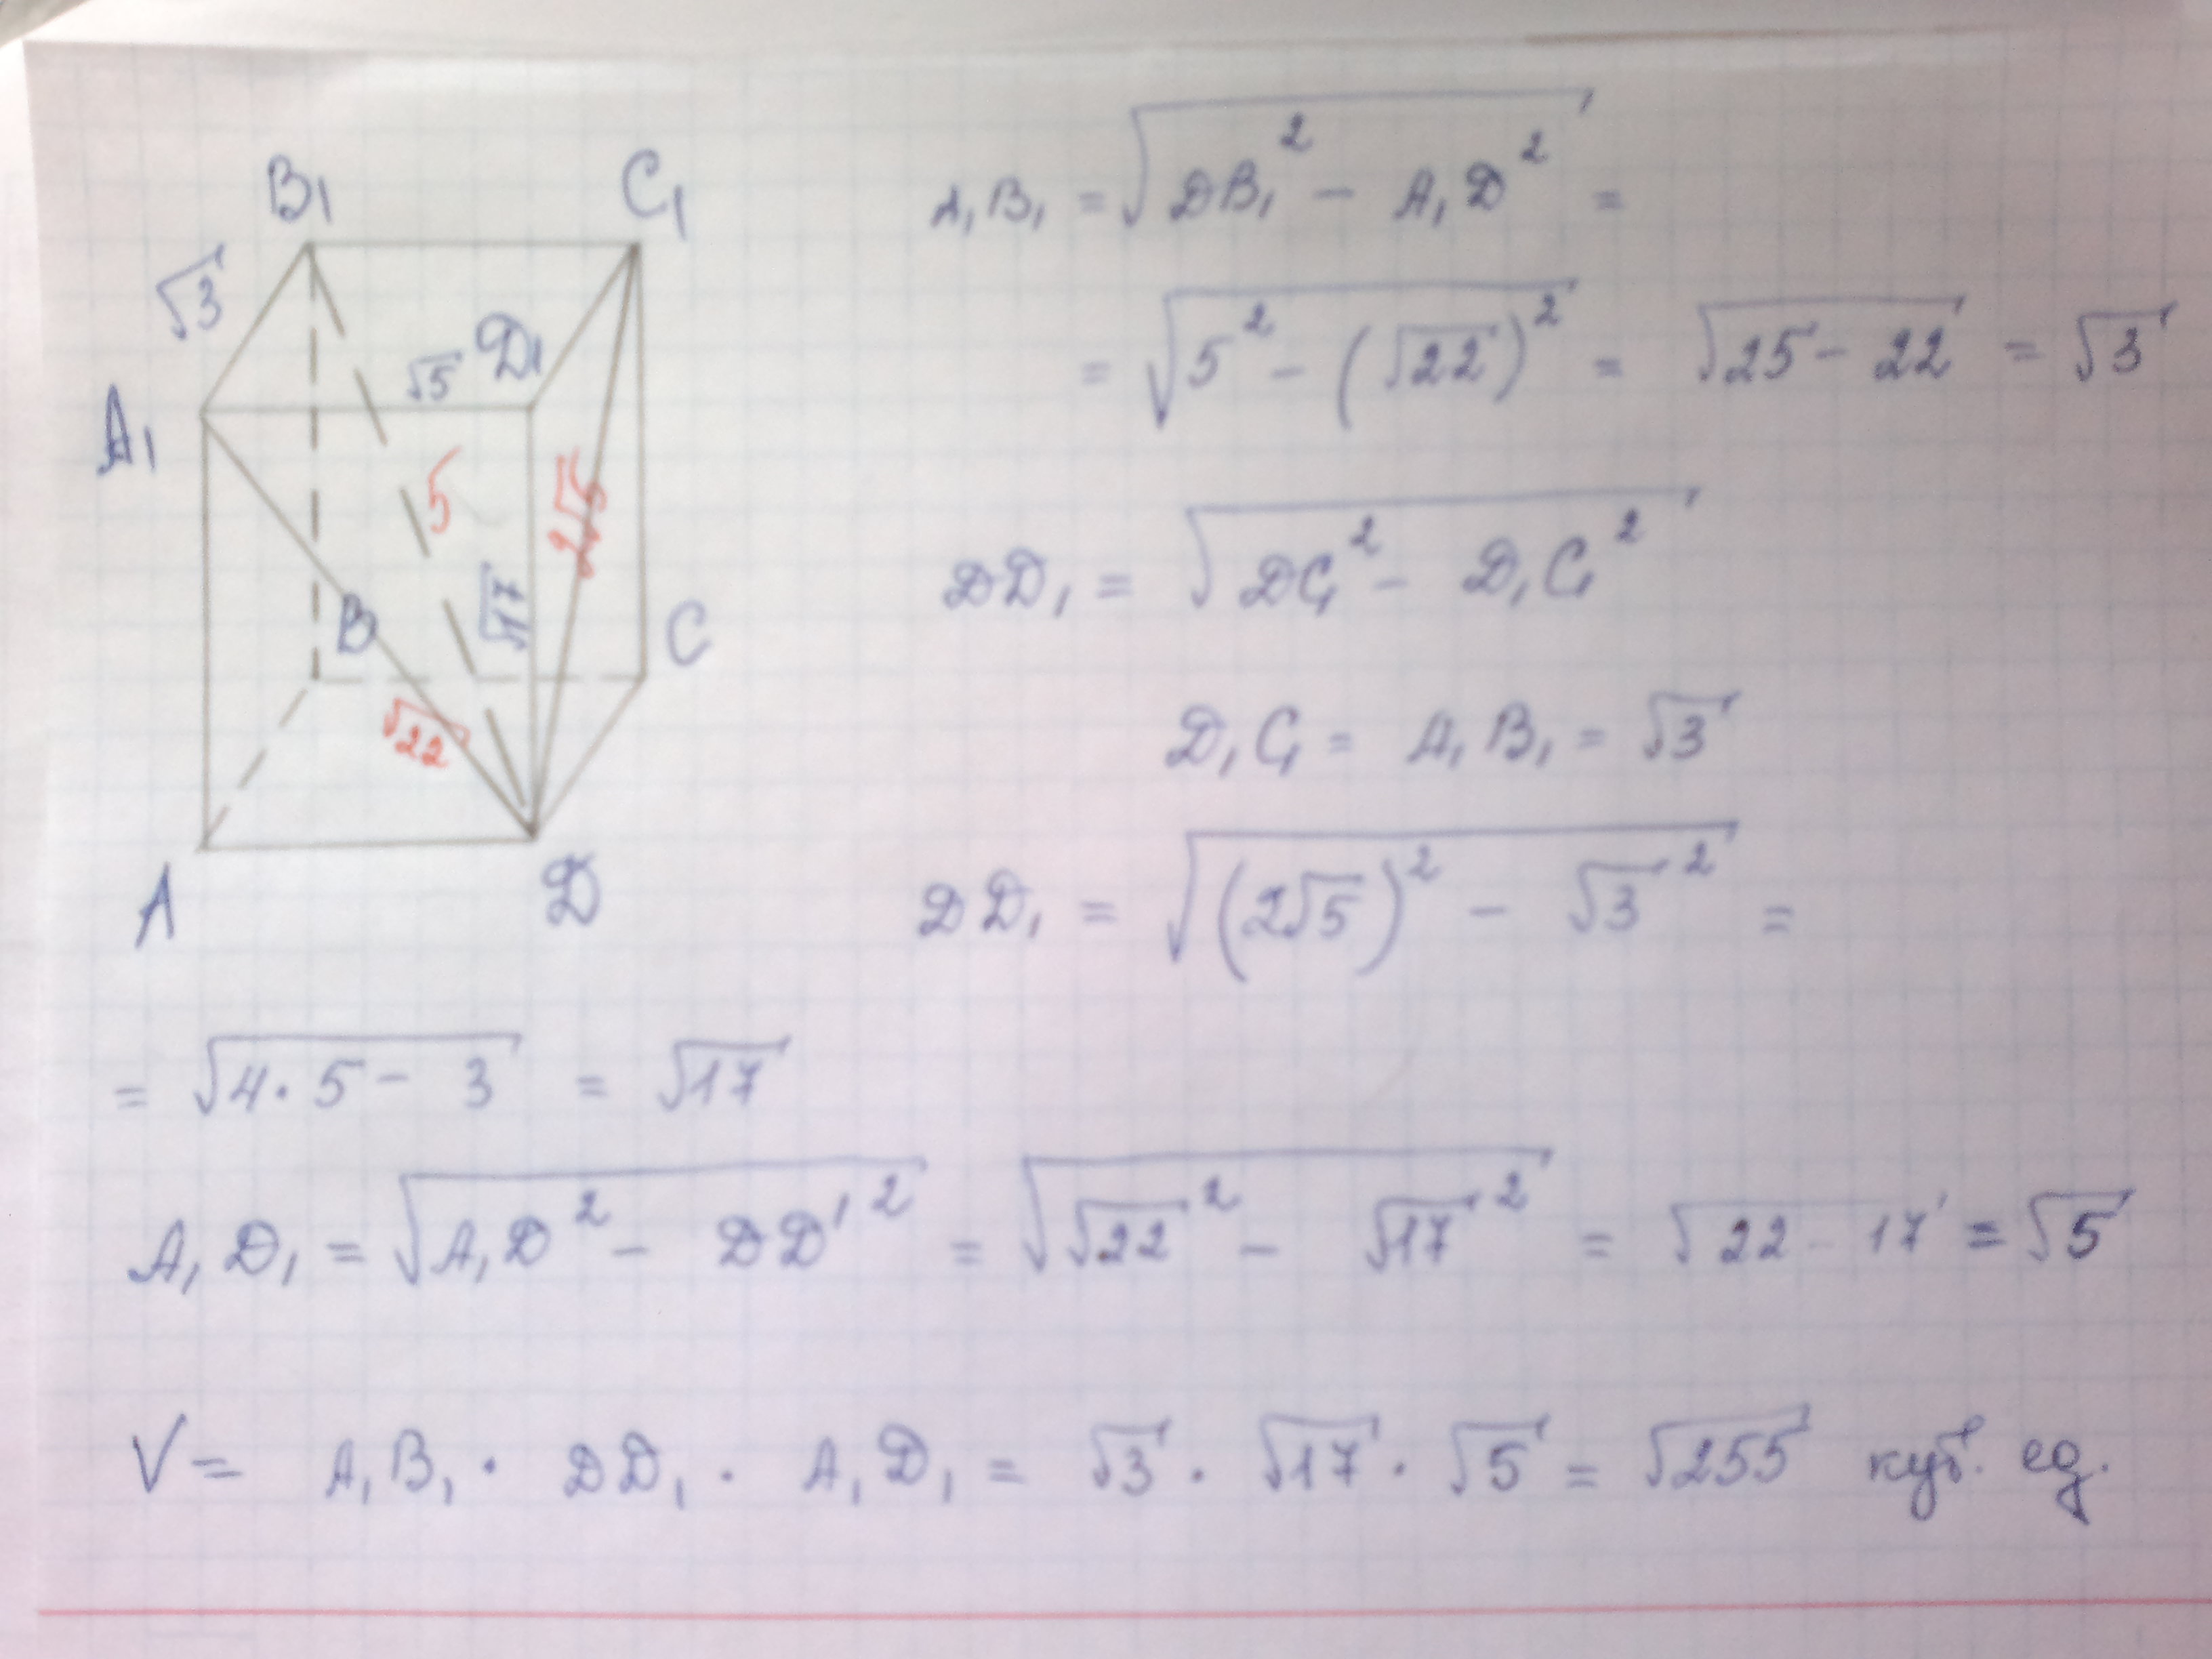 B₁ C₁
√3
√5 D₁
A₁
5 2√5
√17
B C
√22
A D
A₁B₁ = √(DB₁² − A₁D²) =
= √(5² − (√22)²) = √(25 − 22) = √3
DD₁ = √(DC₁² − D₁C₁²)
D₁C₁ = A₁B₁ = √3
DD₁ = √((2√5)² − √3²) =
= √(4 · 5 − 3) = √17
A₁D₁ = √(A₁D² − DD'²) = √(√22² − √17²) = √(22 − 17) = √5
V = A₁B₁ · DD₁ · A₁D₁ = √3 · √17 · √5 = √255 куб. ед.